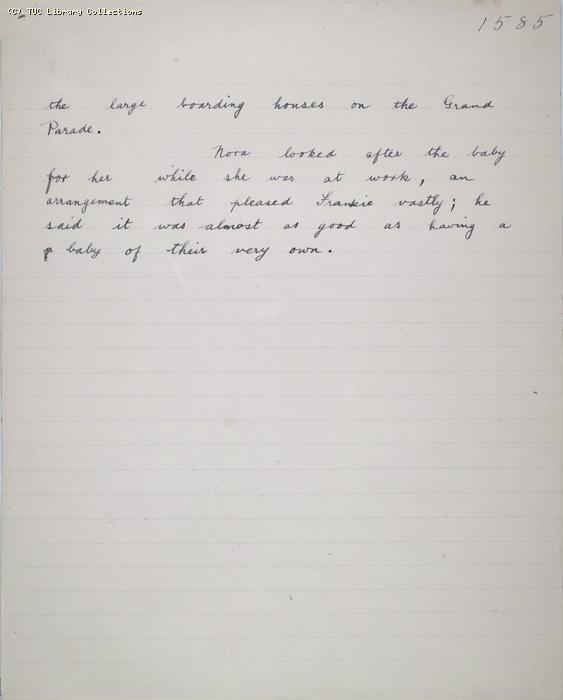 (C) TUC Library Collections
1585
the large boarding houses on the Grand
Parade.
Nora looked after the baby
for her while she was at work, an
arrangement that pleased Frankie vastly; he
said it was almost as good as having a
baby of their very own.